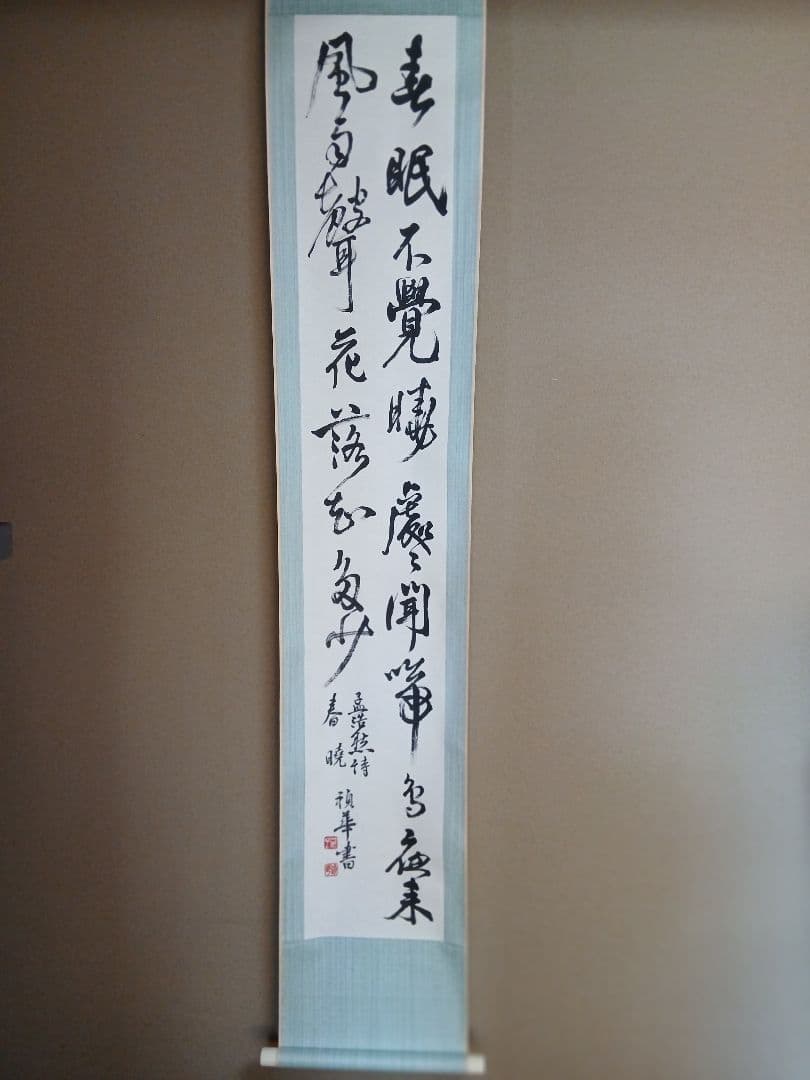 春眠不覺曉處々聞啼鳥夜来
風雨聲花落知多少
孟浩然詩
春曉
禎華書